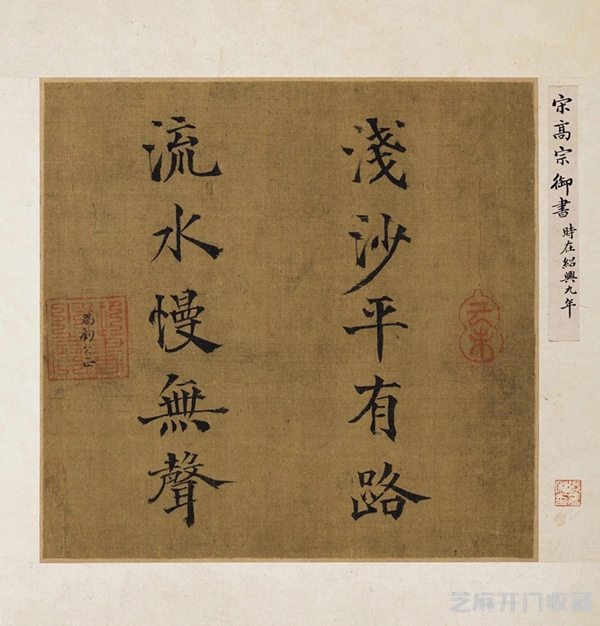 宋高宗御書時在紹興九年
淺沙平有路
流水慢無聲
芝麻开门收藏